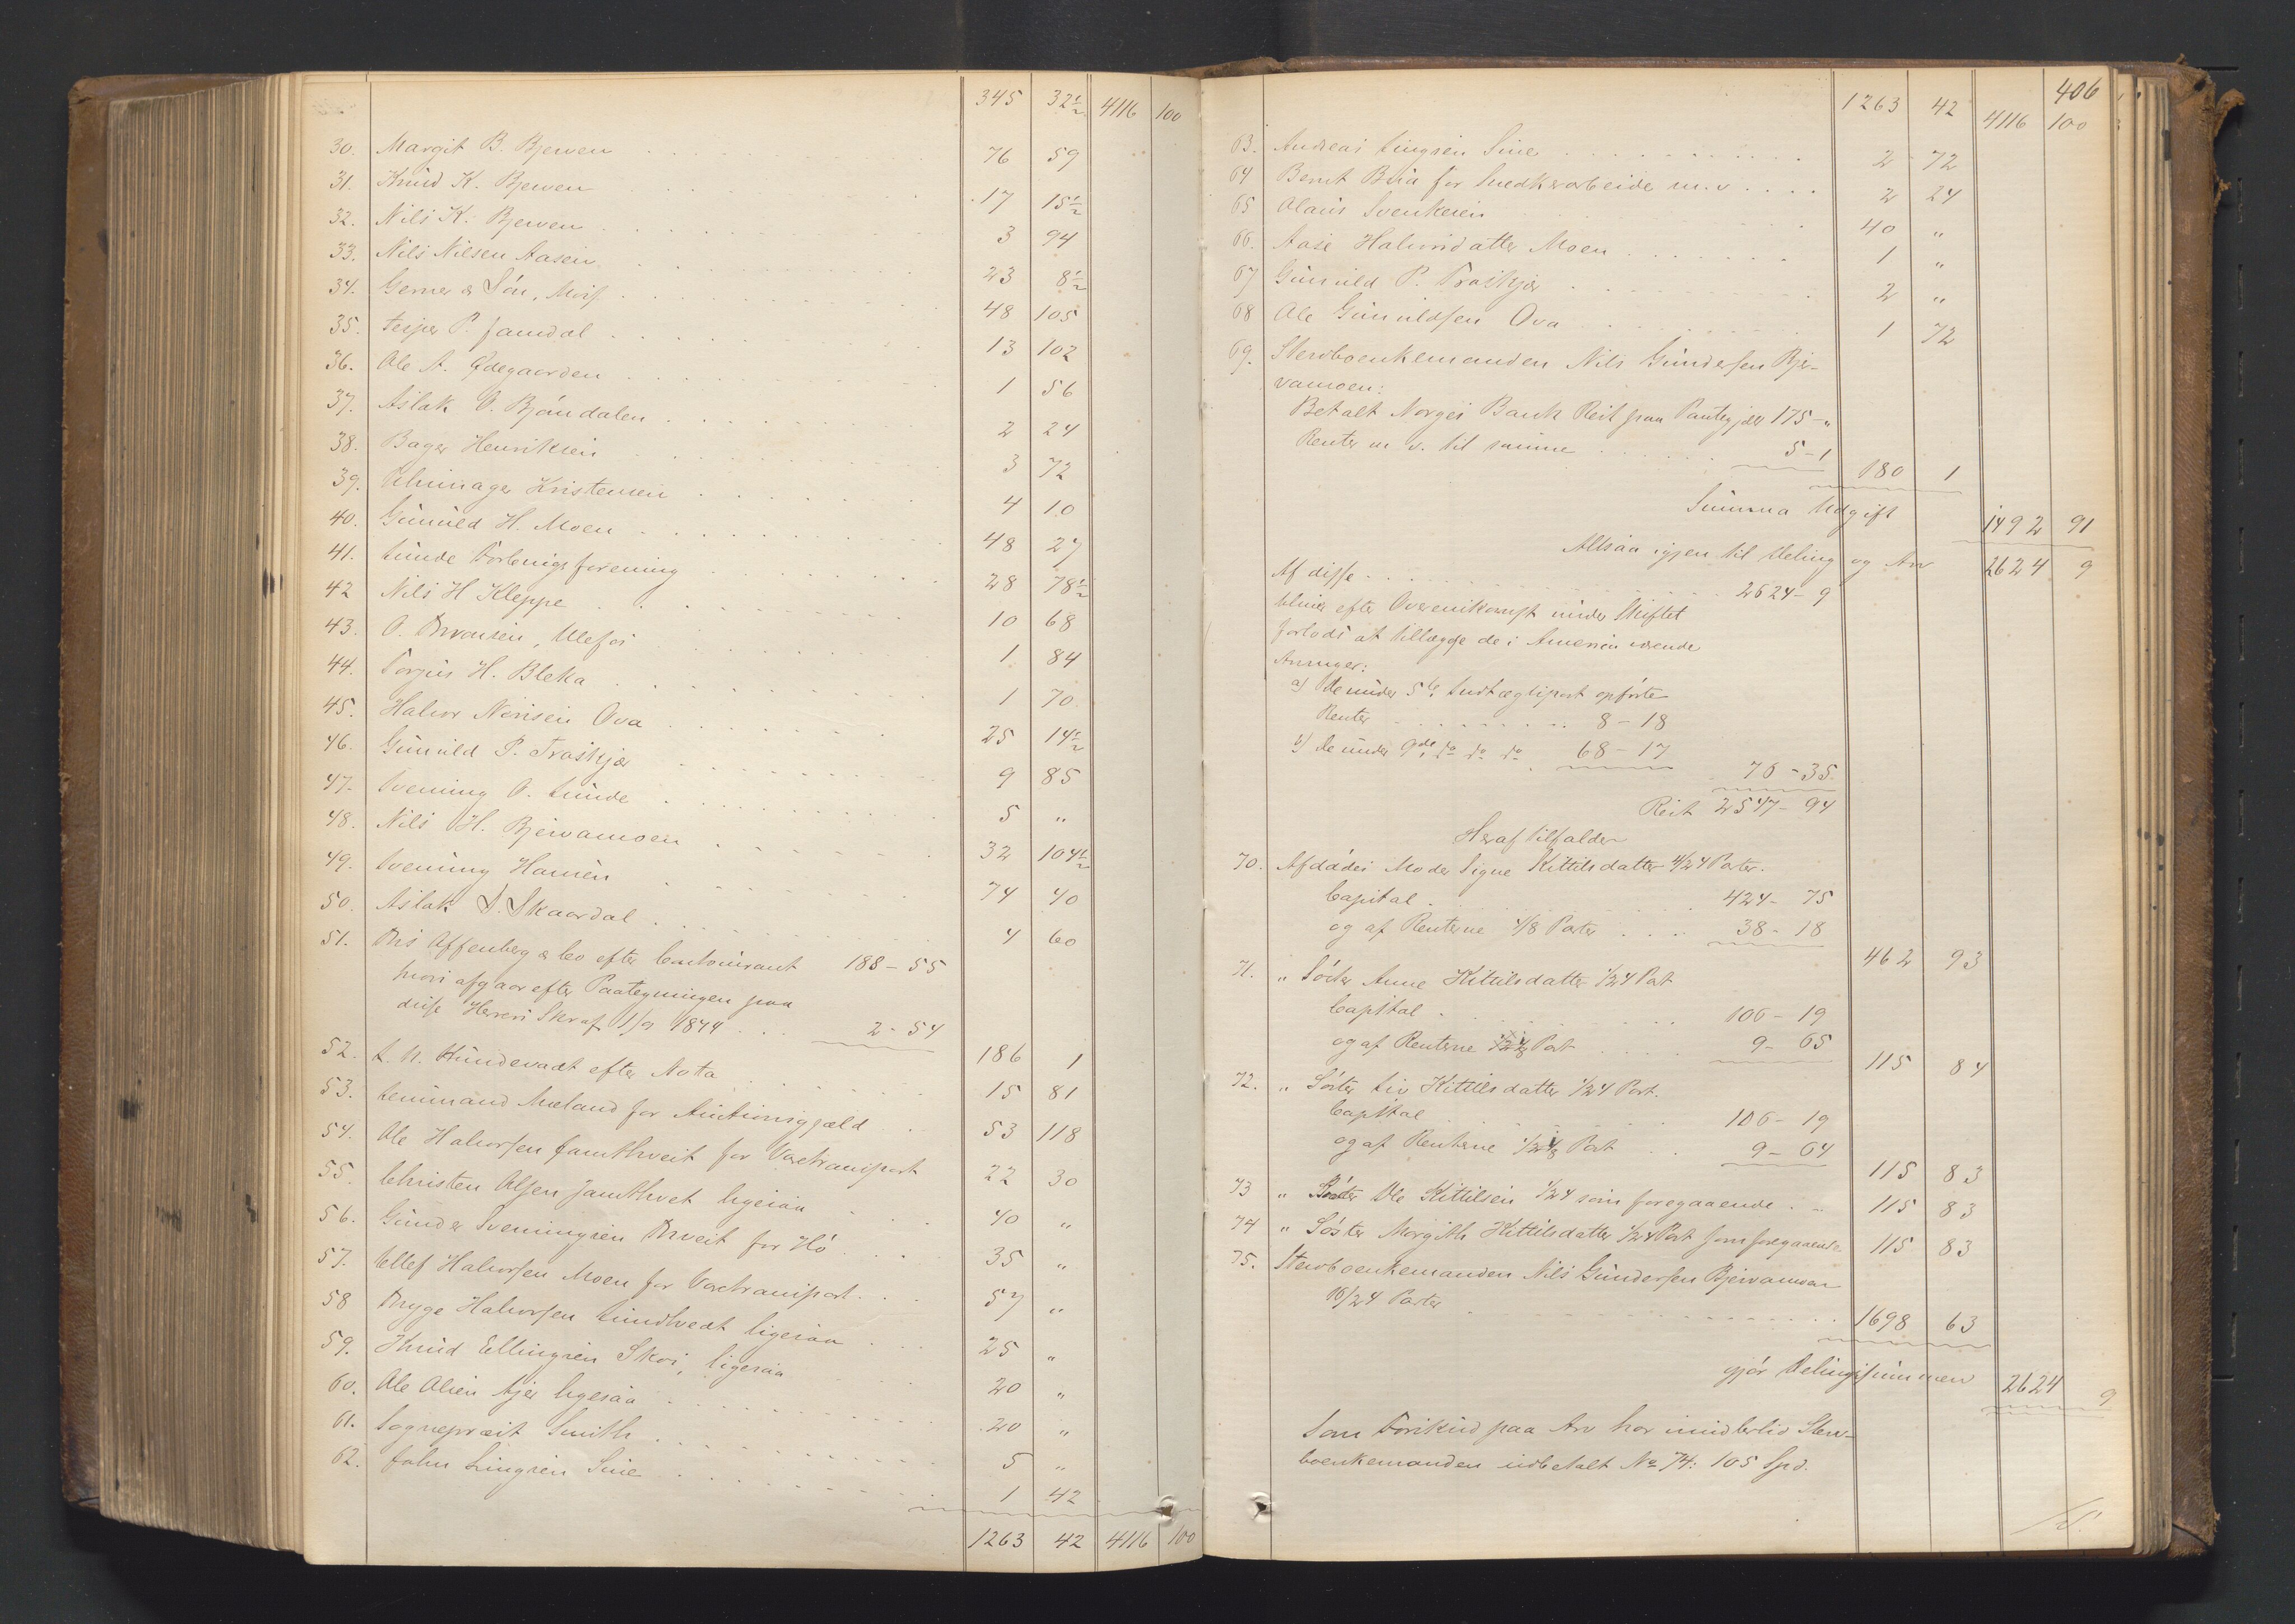 345 32½ 4116 100
30. Margit B. Bjerven 76 59
31. Knud K. Bjerven 17 15½
32. Nils K. Bjerven 3 94
33. Nils Nilsen Aasen 23 8½
34. Gerner & Søn, 48 105
35. Tejer P. Jamdal 13 102
36. Ole A. Ødegaarden 1 56
37. Aslak O. Bjøndalen 2 24
38. Bager Henriksen 3 72
39. Uhrmager Kristensen 4 10
40. Gunuld H. Moen 48 27
41. Lunde Forbrugsforening 28 78½
42 Nils H Kleppe 10 68
43. O. Ulefos 1 84
44. Torjus H. Bleka 1 70
45. Halvor Nirisen Ova 25 14½
46. Gunuld P. Traskjær 9 85
47. Svenning O. Lunde 5 "
48. Nils H. Bjervamoen 32 104½
49. Svenning Hansen 74 40
50. Aslak S. Skaardal 4 60
51. D'Hrr Affenberg & Co efter Contocurant 188-55
hvori afgaar efter Paategningen paa
disse Herrers Skraf 1/9 1874 2-54
186 1
52. L. N. Kundevadt efter Nota 15 81
53. Lensmand Mæland for Auctionsgjæld 53 118
54. Ole Halvorsen Jamthveit for Varetransport 22 30
55. Christen Olsen Jamthvet ligesaa 40 "
56. Gunder Svenningsen Tveit for Hø 35 "
57. Ellef Halvorsen Moen for Varetransport 57 "
58 Trygge Halvorsen Lindtvedt ligesaa 25 "
59. Knud Ellingsen Skoi, ligesaa 20 "
60. Ole Olsen Ajer ligesaa 20 "
61. Sogneprest Smith 5 "
62. John Lingsen Sine 1 42
1263 42 4116 100
406
1263 42 4116 100
63. Andreas Lingsen Sine 2 72
64 Bernt Bria for Snedkerarbeide m.v. 2 24
65 Olaus Svenkesen 40 "
66. Aase Halvorsdatter Moen 1 "
67 Gunuld P. Traskjær 2 "
68 Ole Gunuldsen Ova 1 72
69. Stervboenkemanden Nils Gundersen Bjer-
vamoen:
Betalt Norges Bank Rest paa Pantegjæld 175-"
Renter m v. til samme 5-1
180 1
Summa Udgift 1492 91
Altsaa igjen til Deling og Arv 2624 9
Af disse 2624-9
bliver efter Overenskomst under Skiftet
forlods at tillægge de i Amerika værende
Arvinger:
a) De under 5te Indtægtspost opførte
Renter 8-18
b) de under 9de do do do 68-17
76-35.
Rest 2547-94
Heraf tilfalder
70. Afdødes Moder Signe Kittilsdatter 4/24 Parter.
Capital 424-75
og af Renterne 4/8 Parter 38-18
462 93
71. " Søster Anne Kittilsdatter 1/24 Part
Capital 106-19
og af Renterne 1/8 Part 9-65
115 84
72. " Søster Liv Kittilsdatter 1/24 Part.
Capital 106-19
og af Renterne 1/8 Part 9-64
115 83
73 " Broder Ole Kittilsen 1/24 som foregaaende 115 83
74 " Søster Margith Kittilsdatter 1/24 Part som foregaaende 115 83
75. Stervboenkemanden Nils Gundersen Bjervamoen
16/24 Parter 1698 63
gjør Delingssummen 2624 9
Som Forskud paa Arv har imidlertid Sterv-
boenkemanden udbetalt No 74: 105 Spd.